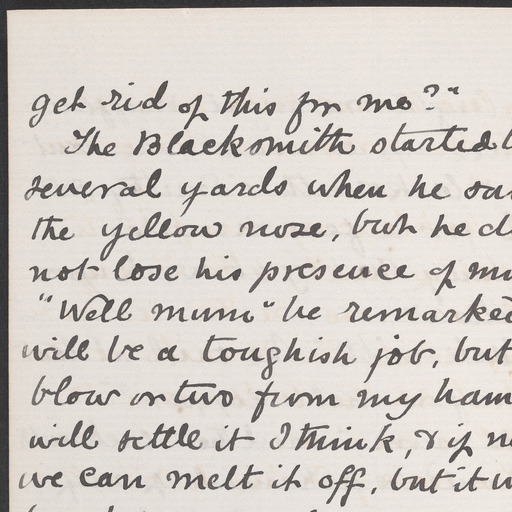 get rid of this for me?"
The Blacksmith started b
several yards when he sa
the yellow nose, but he d
not lose his presence of m
"Well mum" he remarked
will be a toughish job, but
blow or two from my ham
will settle it I think, & if n
we can melt it off, but it w